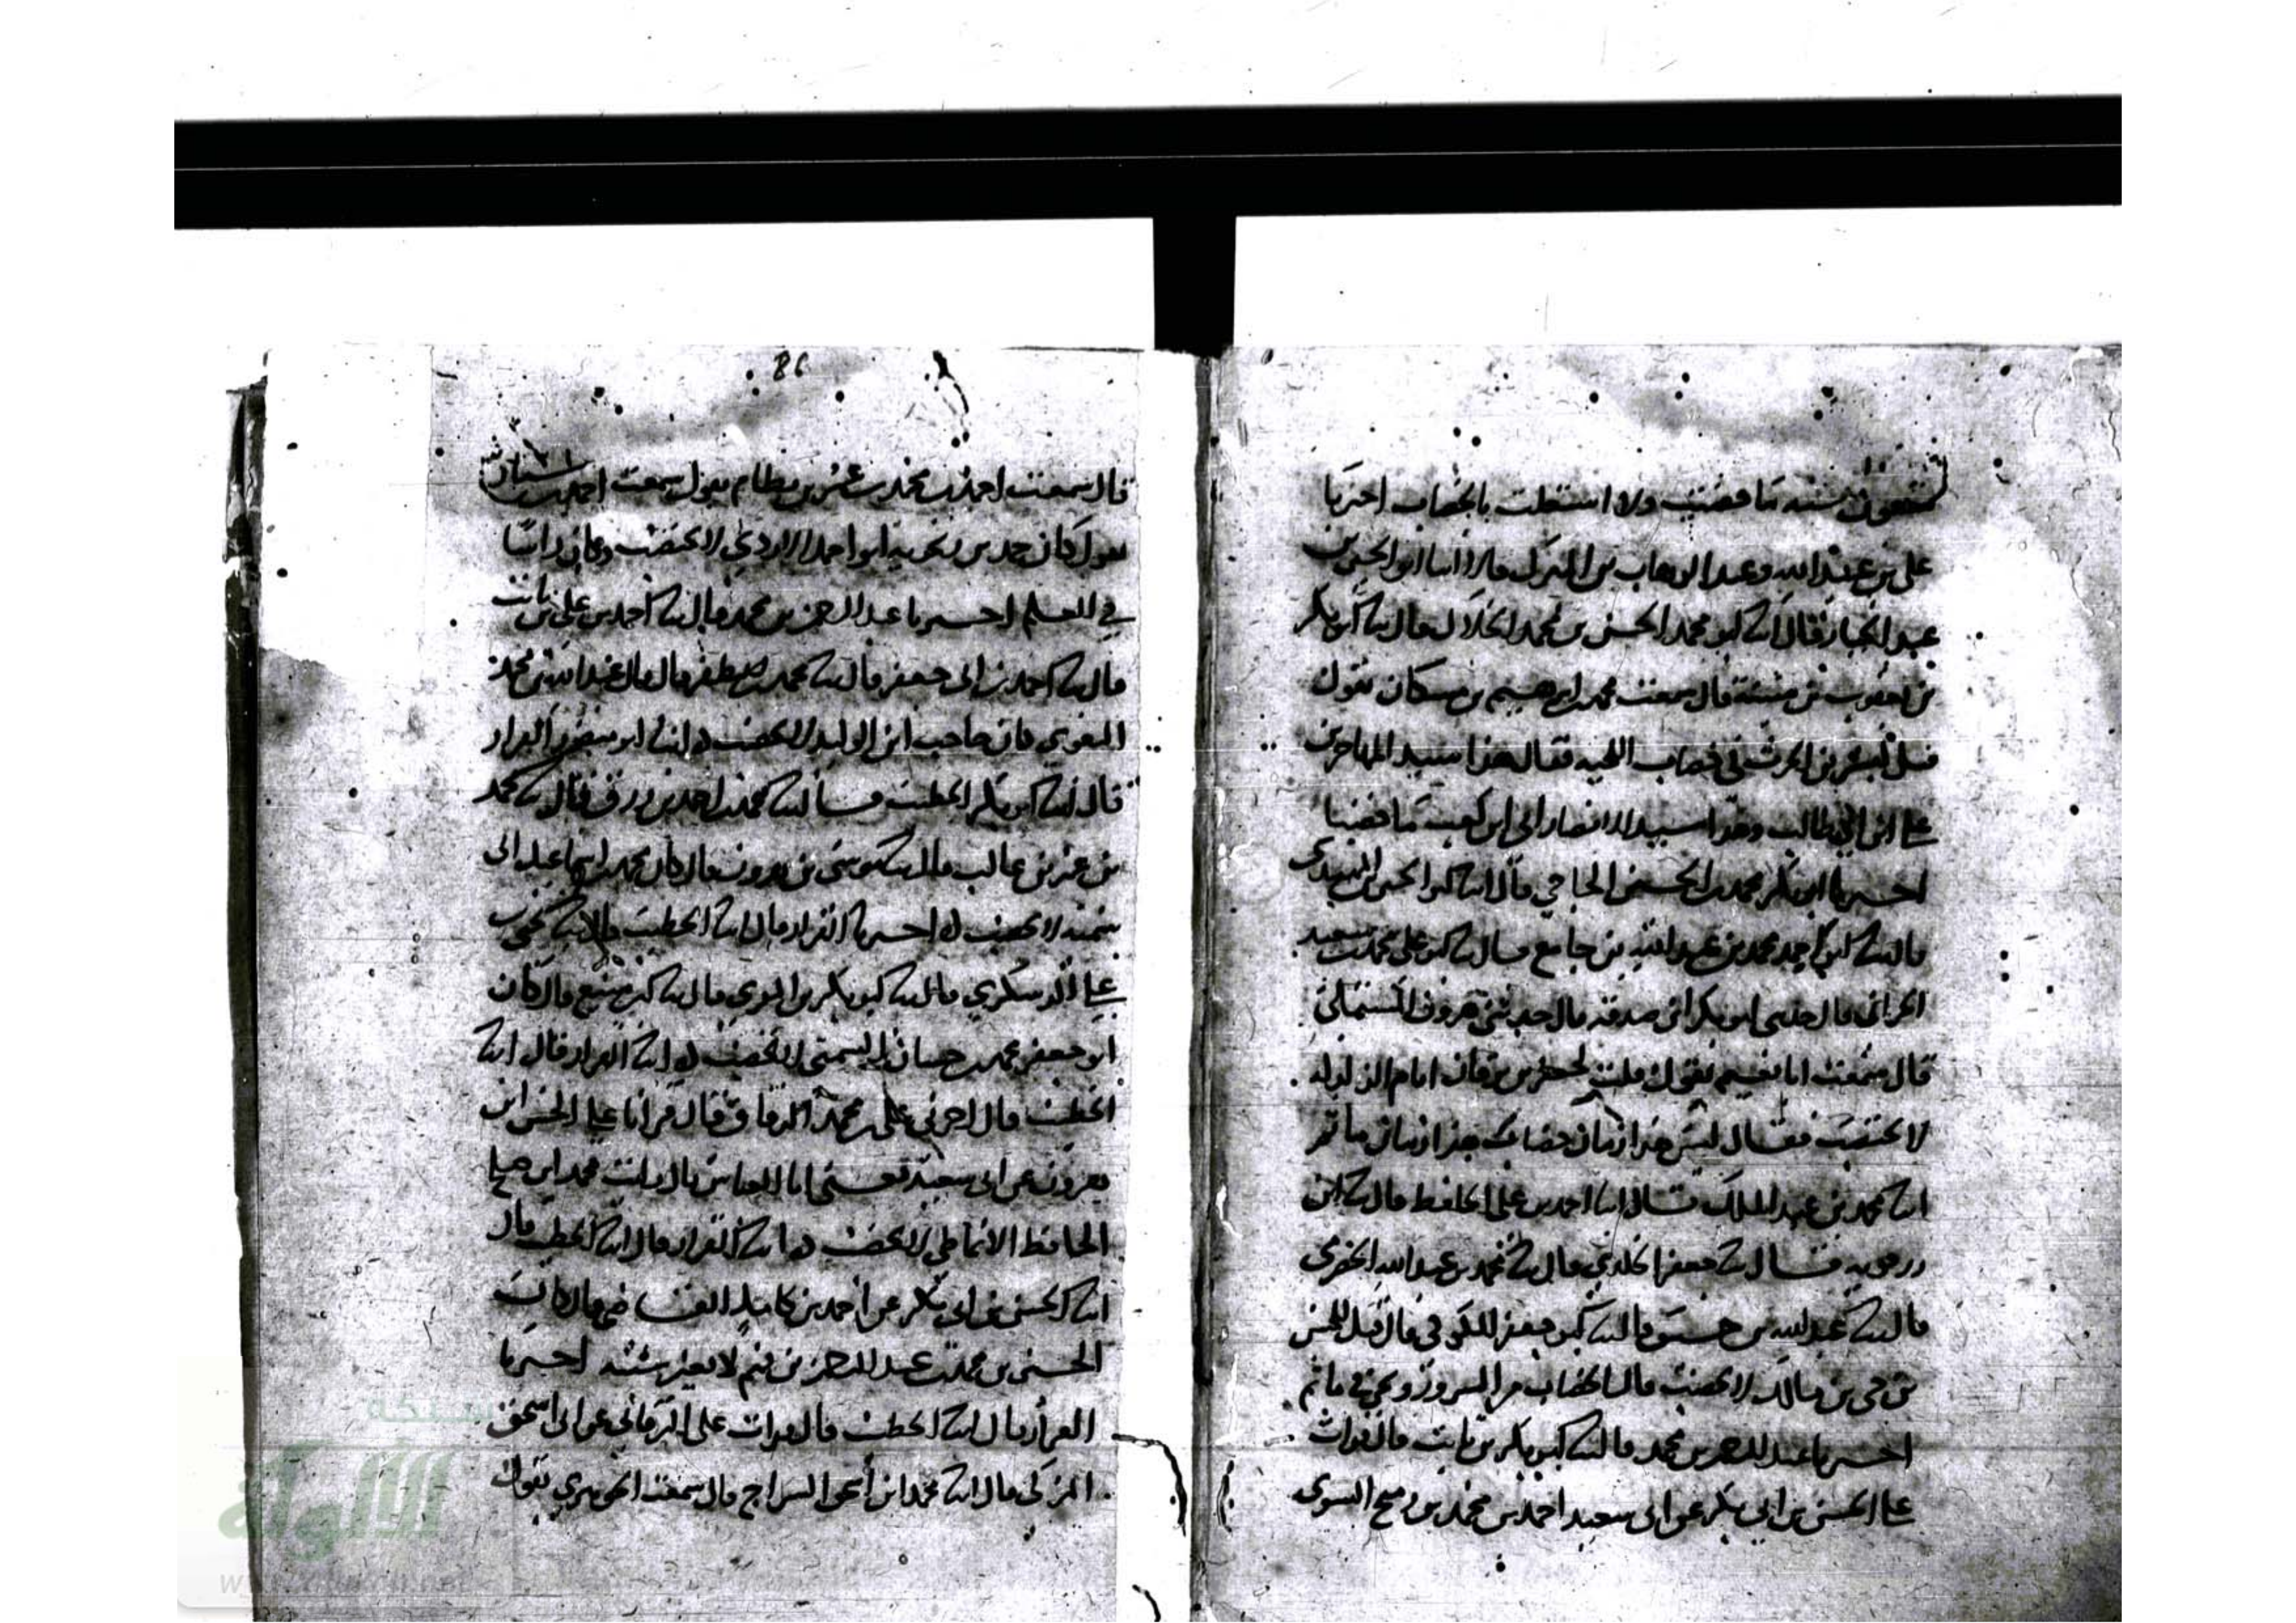 تسعون سنة ما خضبت ولا اشتغلت بالخضاب اخبرنا
على بن عبيد الله وعبد الوهاب بن المبرك قالا انبا ابو الحسن بن
عبد الجبار قال انبا ابو محمد الحسن بن محمد الخلال قال ابو بكر
بن يعقوب بن شيبة قال سمعت محمد بن ابرهيم بن مسكان يقول
قيل لبشر بن الحرث في خضاب اللحية فقال هذا سيد المهاجرين
علي بن ابي طالب وهذا سيد الانصار ابي ابن كعب ما خضبا
اخبرنا ابو بكر محمد بن الحسين الحاجي قال انبا ابو الحسن بن المهتدى
قال ابو احمد محمد بن عبد الله بن جامع قال ابو على محمد بن سعيد
الحراني قال حدثني ابو بكر ابن صدقة قال حدثني هرون المستملي
قال سمعت ابا نعيم يقول قلت لجعفر بن برقان ايام الزلزلة
لا تختضب فقال ليس هذا زمان خضاب هذا زمان ماتم
انبا محمد بن عبد الملك قال انبا احمد بن على الحافظ قال ابن
رزقويه قال جعفر الخلدي قال محمد بن عبد الله الحضرمى
قال عبد الله بن قال ابو جعفر الكوفي قال قيل للحسن
بن حي بن صالح الا تخضب قال الخضاب من السرور ونحن في ماتم
اخبرنا عبد الرحمن بن محمد قال ابو بكر بن ثابت قال قرات
على الحسن بن ابي بكر عن ابى سعيد احمد بن محمد بن رميح النسوى
86
قال سمعت احمد بن محمد بن عمر بن بسطام يقول سمعت احمد بن سيار
يقول كان حميد بن زنجويه ابو احمد الازدي لا يخضب وكان راسا
في العلم اخبرنا عبد الرحمن بن محمد قال احمد بن علي بن ثابت
قال احمد بن ابى جعفر قال محمد بن المظفر قال قال عبد الله بن محمد
البغوي كان حاجب ابن الوليد لا يخضب انبا ابو منصور القزاز
قال انبا ابو بكر الخطيب قال محمد بن احمد بن رزق قال محمد
بن عمر بن غالب قال موسى بن هرون قال كان محمد بن اسماعيل ابى
سمينة لا يخضب اخبرنا القزاز قال انبا الخطيب قال يحيى بن
علي الدسكري قال ابو بكر بن المقري قال ابن منيع قال كان
ابو جعفر محمد بن حسان السمتي لا يخضب انبا القزاز قال انبا
الخطيب قال اخبرني على بن محمد الدقاق قال قرانا على الحسين ابن
هرون عن ابى سعيد يعنى ابا العباس قال رايت محمد ابن صالح
الحافظ الانماطي لا يخضب انبا القزاز قال انبا الخطيب قال
انبا الحسن بن ابى بكر عن احمد بن كامل القاضي قال كان
الحسين بن محمد بن عبد الرحمن بن فهم لا يغير شيبه اخبرنا
القزاز قال انبا الخطيب قال قرات على البرقاني عن ابى اسحق
المزكي قال انبا محمد ابن اسحق السراج قال سمعت الجوهري يقول